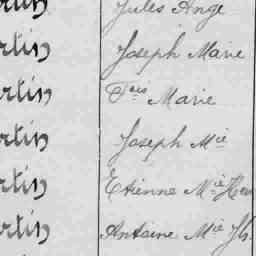 rtin Jules Ange
rtin Joseph Marie
rtin Fcois Marie
rtin Joseph Mie
rtin Etienne Mie
rtin Antoine Mie Jh